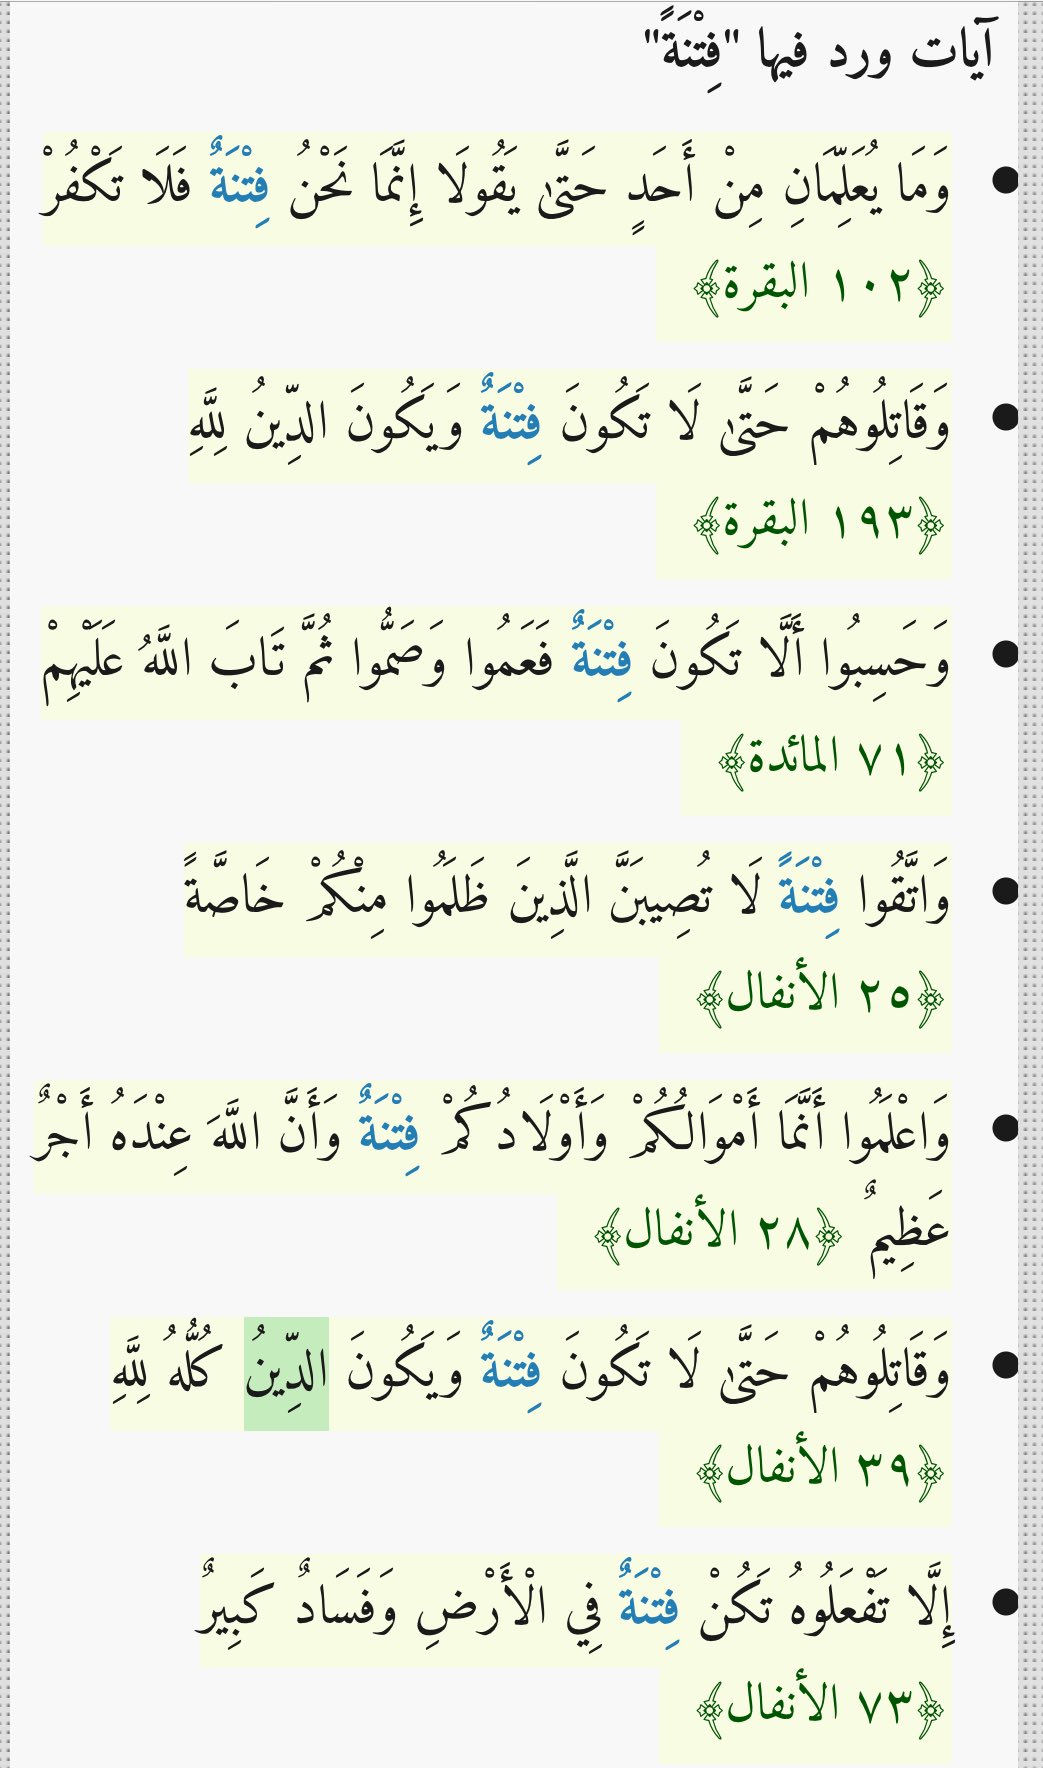 آيات ورد فيها "فِتْنَةً"
وَمَا يُعَلِّمَانِ مِنْ أَحَدٍ حَتَّىٰ يَقُولَا إِنَّمَا نَحْنُ فِتْنَةٌ فَلَا تَكْفُرْ
﴿١٠٢ البقرة﴾
وَقَاتِلُوهُمْ حَتَّىٰ لَا تَكُونَ فِتْنَةٌ وَيَكُونَ الدِّينُ لِلَّهِ
﴿١٩٣ البقرة﴾
وَحَسِبُوا أَلَّا تَكُونَ فِتْنَةٌ فَعَمُوا وَصَمُّوا ثُمَّ تَابَ اللَّهُ عَلَيْهِمْ
﴿٧١ المائدة﴾
وَاتَّقُوا فِتْنَةً لَا تُصِيبَنَّ الَّذِينَ ظَلَمُوا مِنْكُمْ خَاصَّةً
﴿٢٥ الأنفال﴾
وَاعْلَمُوا أَنَّمَا أَمْوَالُكُمْ وَأَوْلَادُكُمْ فِتْنَةٌ وَأَنَّ اللَّهَ عِنْدَهُ أَجْرٌ
عَظِيمٌ ﴿٢٨ الأنفال﴾
وَقَاتِلُوهُمْ حَتَّىٰ لَا تَكُونَ فِتْنَةٌ وَيَكُونَ الدِّينُ كُلُّهُ لِلَّهِ
﴿٣٩ الأنفال﴾
إِلَّا تَفْعَلُوهُ تَكُنْ فِتْنَةٌ فِي الْأَرْضِ وَفَسَادٌ كَبِيرٌ
﴿٧٣ الأنفال﴾